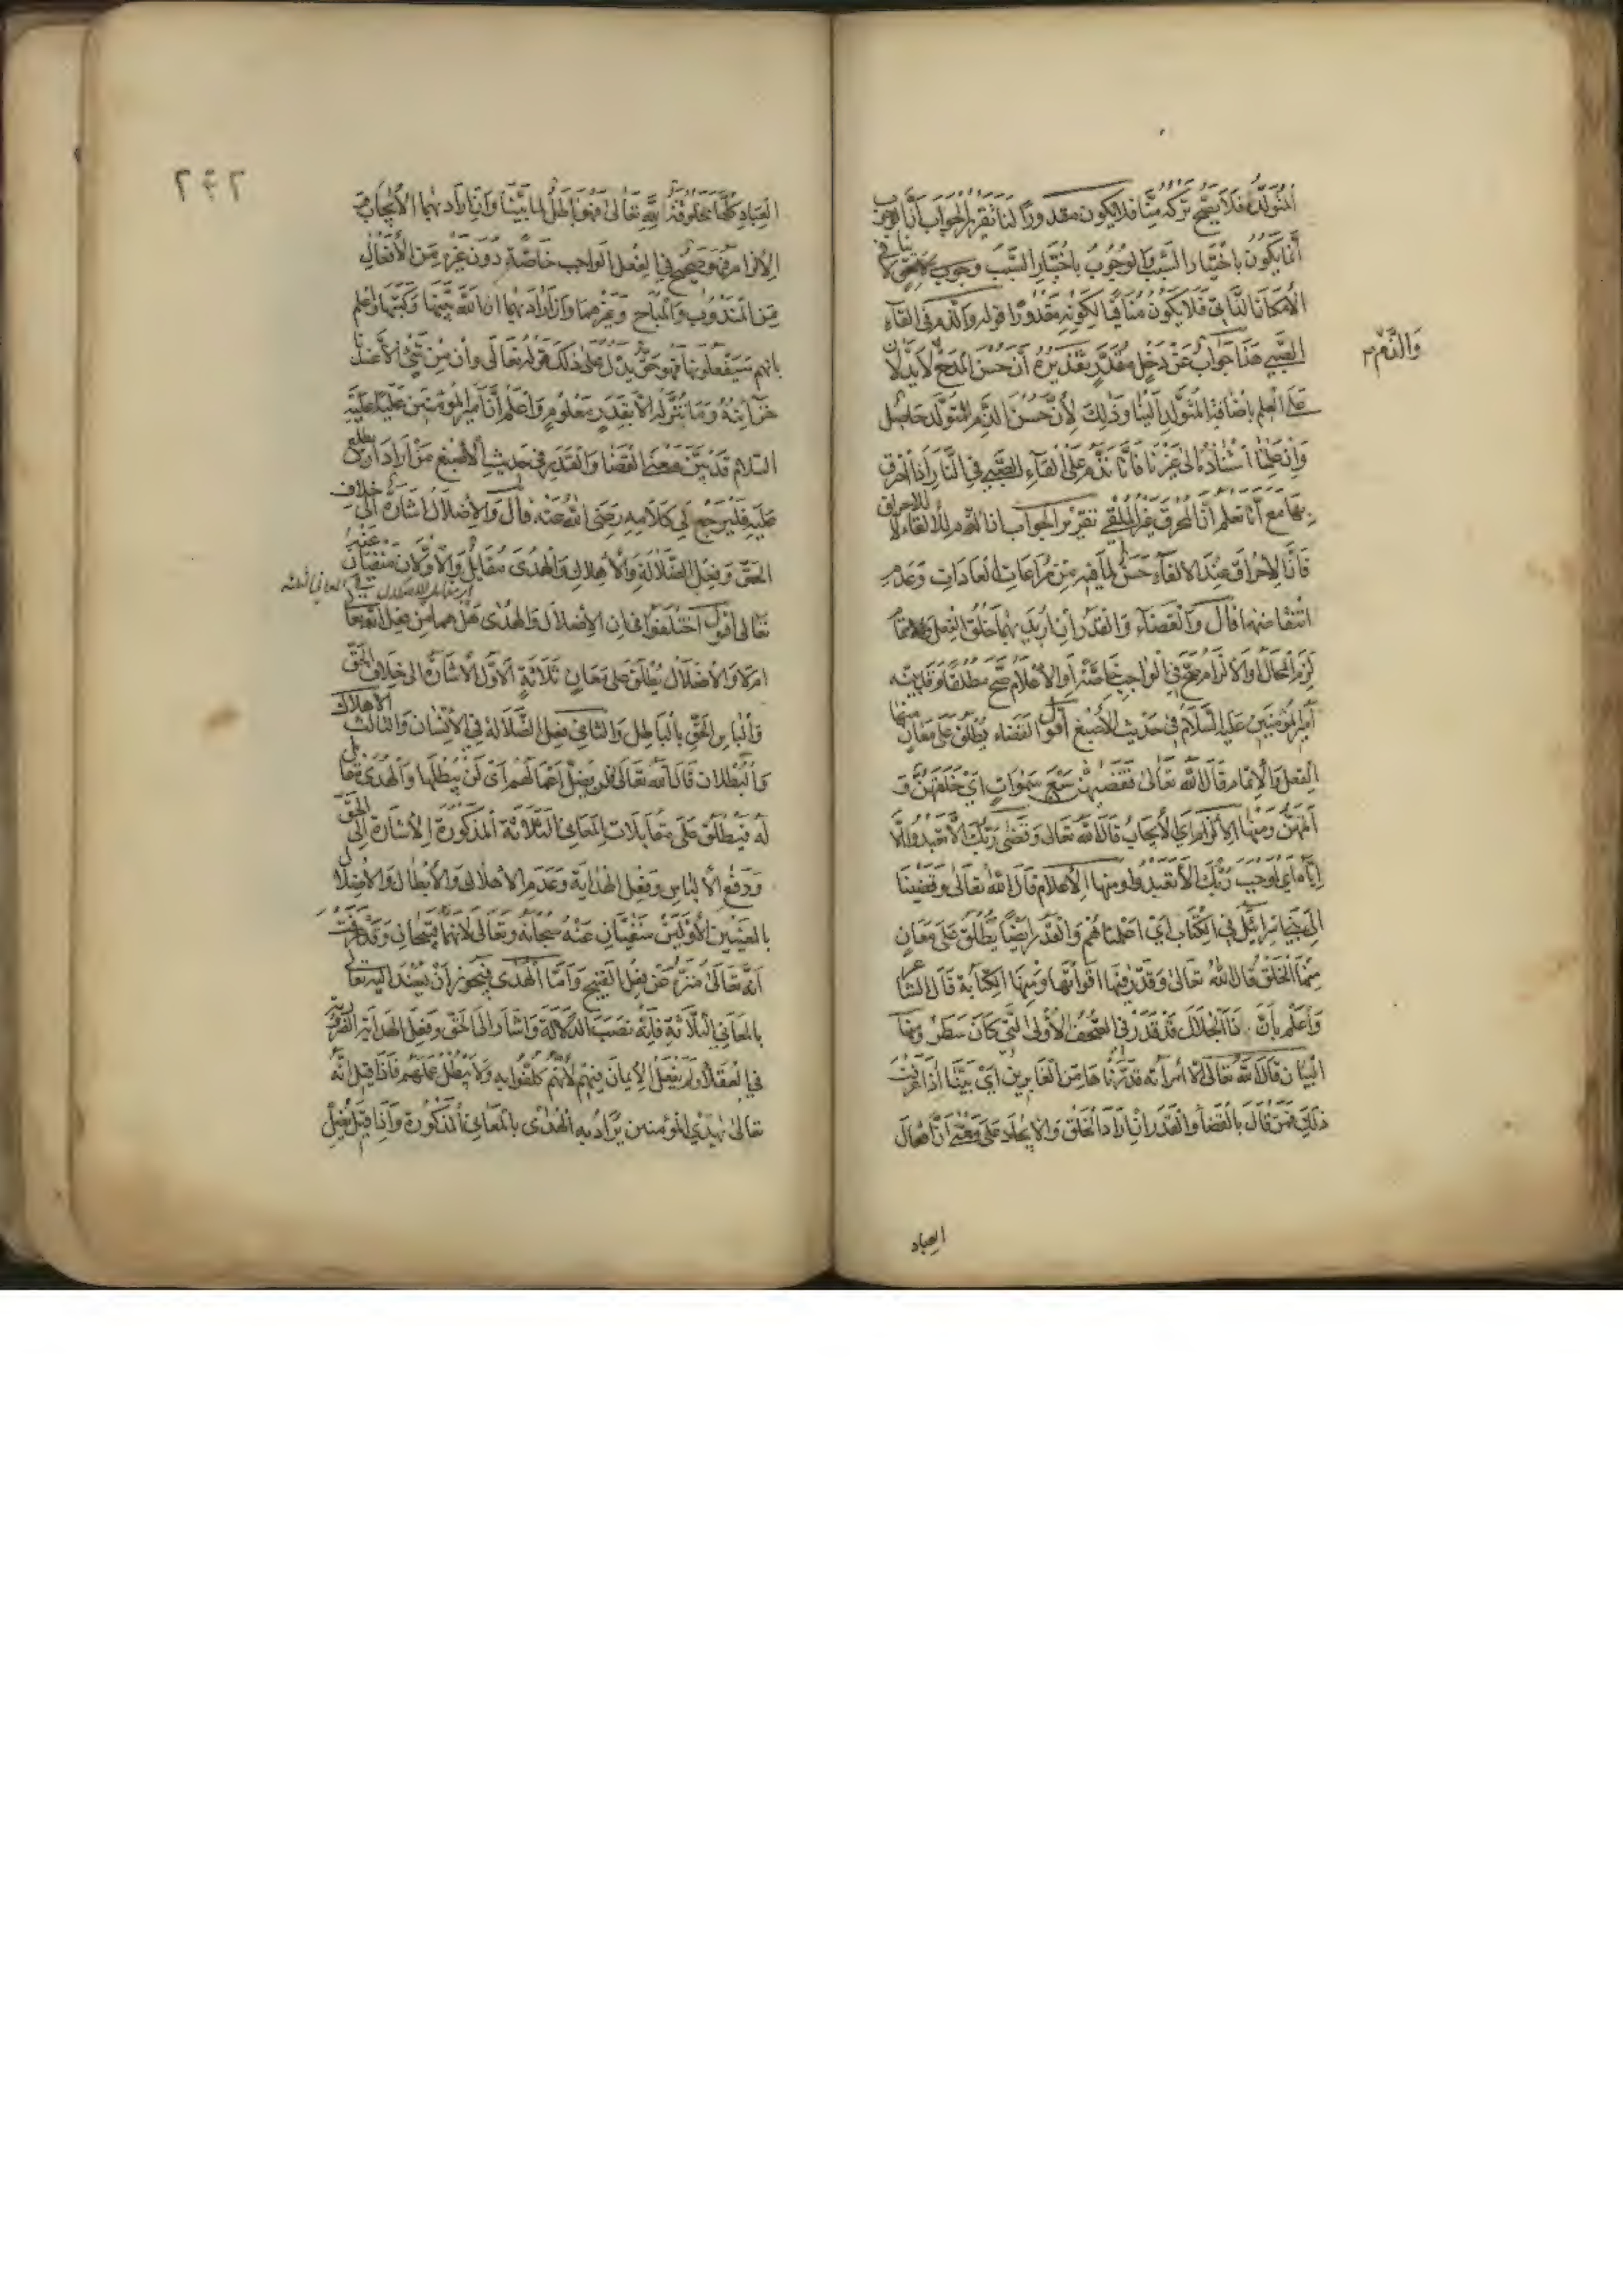 المتولد فلا يصح تركه منا فلا يكون مقدورا لنا تقرير الجواب أن الوجوب
انما يكون باختيار السبب والوجوب باختيار السبب وجوب لاحق لا ينافي
الامكان الذاتي فلا يكون منافيا لكونه مقدورا قوله والذم في القاء
الصبي هذا جواب عن دخل مقدر تقديره أن حسن المدح والذم لا يدلان
على العلم باضافة المتولد الينا وذلك لأن حسن الذم للمتولد حاصل
وان علمنا استناده الى غيرنا فانا نذم على القاء الصبي في النار اذا احترق
بها مع انا نعلم أن المحرق غير الملقي تقرير الجواب ان الذم للالقاء لا للاحراق
فان الاحراق عند الالقاء حسن لما فيه من مراعات العادات وعدم
انتقاضها قال والقضاء والقدر ان اريد بهما خلق الفعل
لزم المحال أو الالزام صح في الواجب خاصة أو الاعلام صح مطلقا وقد بينه
أمير المؤمنين عليه السلام في حديث الأصبغ أقول القضاء يطلق على معان منها
الفعل والاتمام قال الله تعالى فقضيهن سبع سموات أي خلقهن و
أتمهن ومنها الالزام أي الايجاب قال الله تعالى وقضى ربك الا تعبدوا الا
اياه أي أوجب ربك الا تعبدوا ومنها الاعلام قال الله تعالى وقضينا
الى بني اسرائيل في الكتاب أي اعلمناهم والقدر ايضا يطلق على معان
منها الخلق قال الله تعالى وقدر فيها اقواتها ومنها الكتابة قال الشاعر
واعلم بأن ذا الجلال قد قدر في الصحف الأولى التي كان سطر ومنها
البيان قال الله تعالى الا امرأته قدرناها من الغابرين أي بينا اذا عرفت
ذلك فمن قال بالقضاء والقدر ان اراد الخلق والايجاد على معنى أن افعال
العباد
والذم
٢٤٢
العباد كلها مخلوقة لله تعالى فهو باطل لما بينا وان اراد بهما الايجاب و
الالزام فهو صحيح في الفعل الواجب خاصة دون غيره من الأفعال
من المندوب والمباح وغيرهما وان اراد بهما ان الله بينها وكتبها واعلم
بانهم سيفعلونها فهو حق يدل على ذلك قوله تعالى وان من شيء الا عندنا
خزائنه وما ننزله الا بقدر معلوم واعلم أن أمير المؤمنين عليا عليه
السلام قد بين معنى القضا والقدر في حديث الأصبغ من أراد أن يطلع
عليه فليرجع الى كلامه رضي الله عنه قال والاضلال اشارة الى خلاف
الحق وفعل الضلالة والاهلاك والهدى مقابل والأولان منفيان عنه
تعالى أقول اختلفوا في ان الاضلال والهدى هل هما من فعل الله تعا
ام لا والاضلال يطلق على معان ثلاثة الأول الاشارة الى خلاف الحق
والباس الحق بالباطل والثاني فعل الضلالة في الانسان والثالث الاهلاك
والبطلان قال الله تعالى فلن يضل اعمالهم أي لن يبطلها والهدى مقابل
له فيطلق على مقابلات المعاني الثلاثة المذكورة الاشارة الى الحق
ودفع الالباس وفعل الهداية وعدم الاهلاك والابطال والاضلال
بالمعنيين الأولين منفيان عنه سبحانه وتعالى لانهما قبيحان وقد عرفت
انه تعالى منزه عن فعل القبيح وأما الهدى فيجوز أن يسند اليه تعالى
بالمعاني الثلاثة فانه نصب الدلالة واشار الى الحق وفعل الهداية الضرورية
في العقلاء ولم يفعل الايمان فيهم لأنهم كلفوا به ولا يبطل عملهم فاذا قيل انه
تعالى يهدي المؤمنين يراد به الهدى بالمعاني المذكورة واذا قيل يضل